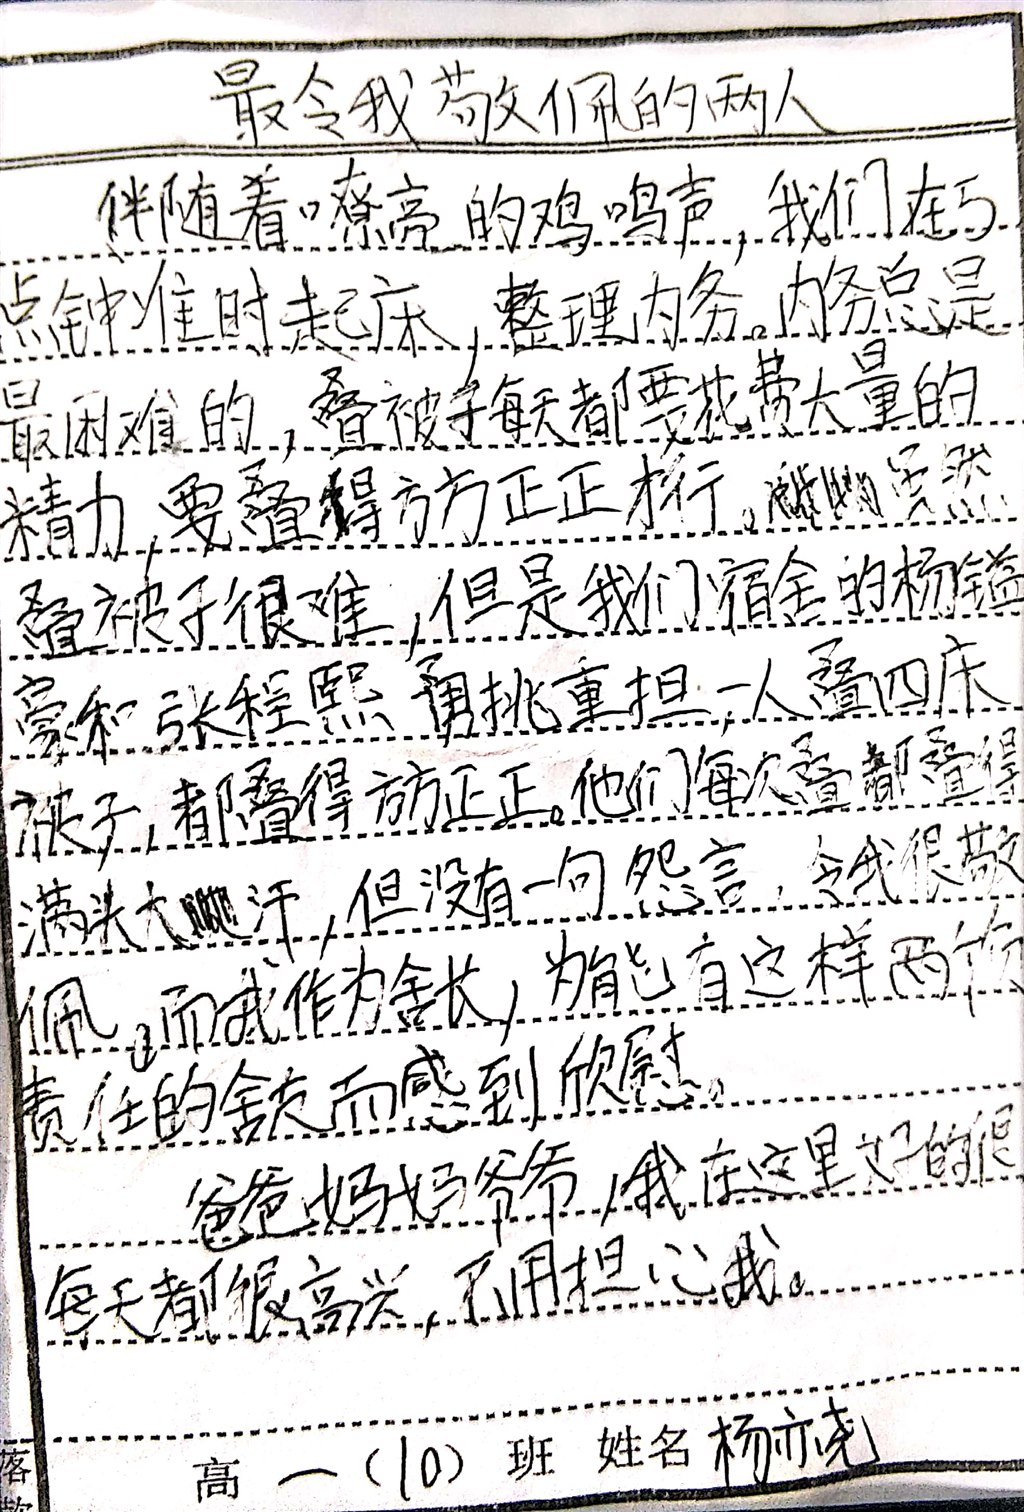 最令我敬佩的两人
伴随着嘹亮的鸡鸣声,我们在5
点钟准时起床,整理内务。内务总是
最困难的,叠被子每天都要花费大量的
精力,要叠得方方正正才行。虽然
叠被子很难,但是我们宿舍的杨镒
豪和张程熙勇挑重担,一人叠四床
被子,都叠得方方正正。他们每次叠都叠得
满头大汗,但没有一句怨言,令我很敬
佩。而我作为舍长,为能有这样两份
责任的舍友而感到欣慰。
爸爸妈妈爷爷,我在这里好的很
每天都很高兴,不用担心我。
高一(10)班 姓名杨亦尧
落
款